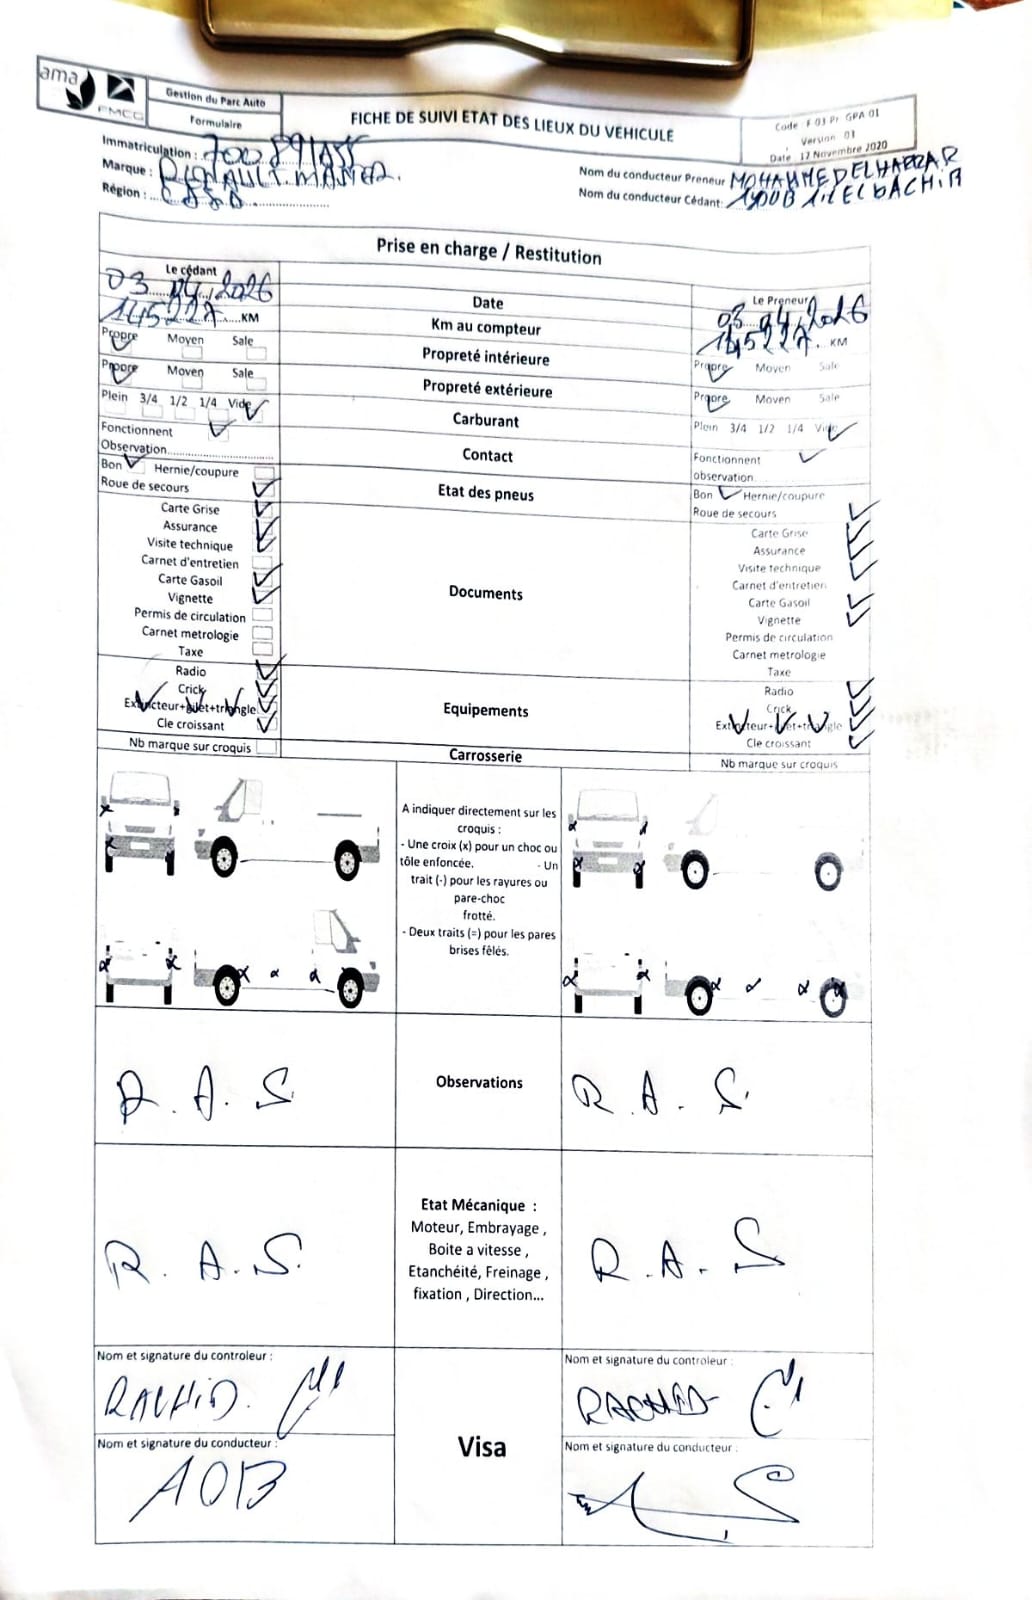 ama
FMCG
Gestion du Parc Auto
Formulaire
FICHE DE SUIVI ETAT DES LIEUX DU VEHICULE
Code : F 03 Pr GPA 01
Version 01
Date 12 Novembre 2020
Immatriculation :
Marque : RENAULT.MASTER.
Région :
Nom du conducteur Preneur MOHAMMED ELHABZAR
Nom du conducteur Cédant:
Prise en charge / Restitution
Le cédant
Le Preneur
03 04 2026
Date
03 04 2026
145227 KM
Km au compteur
145227 KM
Propre Moyen Sale
Propreté intérieure
Propre Moyen Sale
Propre Moyen Sale
Propreté extérieure
Propre Moyen Sale
Plein 3/4 1/2 1/4 Vide
Carburant
Plein 3/4 1/2 1/4 Vide
Fonctionnent
Observation
Contact
Fonctionnent
observation
Bon Hernie/coupure
Roue de secours
Etat des pneus
Bon Hernie/coupure
Roue de secours
Carte Grise
Assurance
Visite technique
Carnet d'entretien
Carte Gasoil
Vignette
Permis de circulation
Carnet metrologie
Taxe
Documents
Carte Grise
Assurance
Visite technique
Carnet d'entretien
Carte Gasoil
Vignette
Permis de circulation
Carnet metrologie
Taxe
Radio
Crick
Extincteur+gilet+triangle
Cle croissant
Equipements
Radio
Crick
Extincteur+gilet+triangle
Cle croissant
Nb marque sur croquis
Carrosserie
Nb marque sur croquis
A indiquer directement sur les
croquis :
- Une croix (x) pour un choc ou
tôle enfoncée. - Un
trait (-) pour les rayures ou
pare-choc
frotté.
- Deux traits (=) pour les pares
brises fêlés.
R.A.S
Observations
R.A.S.
R.A.S.
Etat Mécanique :
Moteur, Embrayage ,
Boite a vitesse ,
Etanchéité, Freinage ,
fixation , Direction...
R.A.S
Nom et signature du controleur :
RACHID.
Nom et signature du conducteur :
Visa
Nom et signature du controleur :
RACHID
Nom et signature du conducteur :